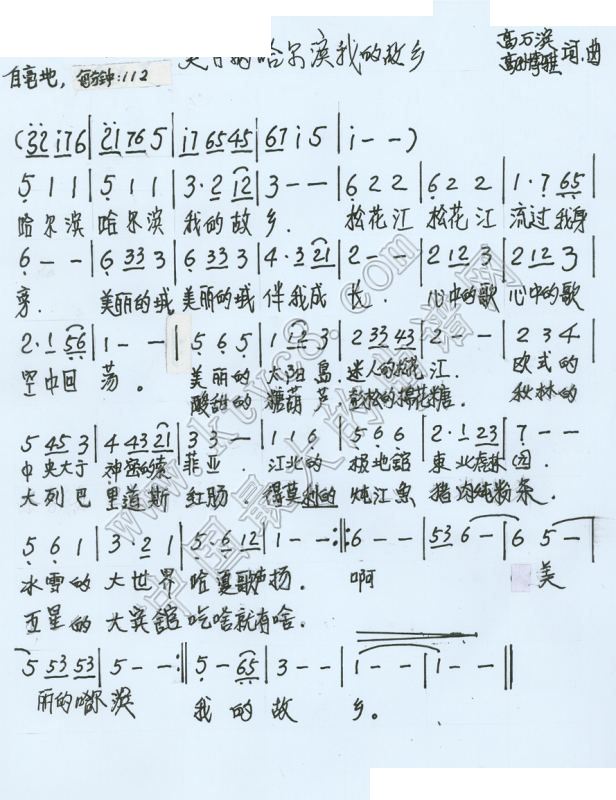 哈尔滨我的故乡
自豪地, 每分钟:112
高万滨 词.曲
(32 i76|2i 76 5|i7 65 45|67 i 5|i - -)
5 1 1|5 1 1|3·2 12|3 - -|6 2 2|6 2 2|1·7 65|
哈尔滨 哈尔滨 我的故 乡. 松花江 松花江 流过我身
6 - -|6 33 3|6 33 3|4·3 21|2 - -|2 12 3|2 12 3|
旁. 美丽的城 美丽的城 伴我成 长. 心中的歌 心中的歌
2·1 56|1 - -|5 6 5|1 12 3|2 33 43|2 - -|2 3 4|
空中回 荡。 美丽的 太阳岛.迷人的松花江. 欧式的
酸甜的 糖葫芦.彭松的棉花糖. 秋林的
5 45 3|4 43 21|3 3 -|1 1 6|5 6 6|2·1 23|7 - -|
中央大于 神密的索 菲亚. 江北的 极地館 東北虎林园.
大列巴 里道斯 红肠.得莫利的 炖江鱼 猪肉炖粉条.
5 6 1|3·2 1|5·6 12|1 - -:||:6 - -|53 6 -|6 5 -|
冰雪的 大世界 哈夏歌声扬. 啊 美
五星的 大宾館 吃啥就有啥.
5 53 53|5 - -:||5 - 65|3 - -|1 - -|1 - -||
丽的哈尔滨 我的故 乡。
www.ktvc8.com
中国最大的曲谱网